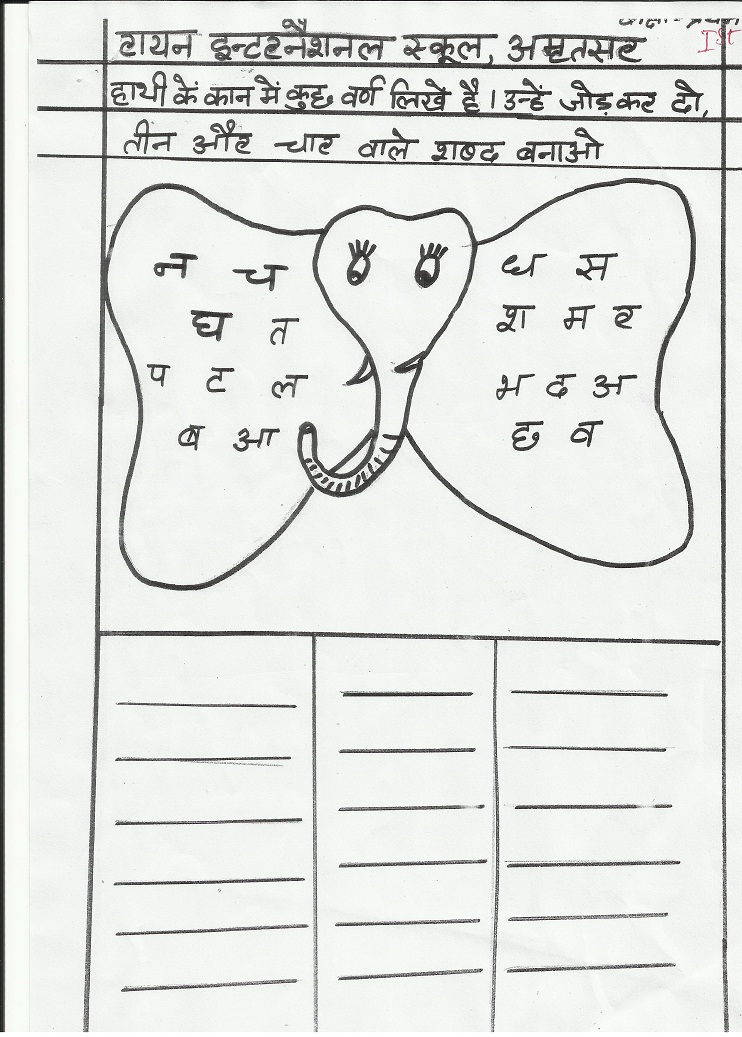 Ist
रायन इन्टरनैशनल स्कूल, अमृतसर
हाथी कें कान में कुछ वर्ण लिखे है। उन्हें जोड़ कर दो,
तीन और चार वाले शब्द बनाओ
न च
घ त
प ट ल
ब आ
ध स
श म र
भ द अ
छ व